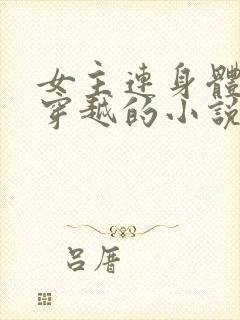 女主連身體
穿越的小說
呂厝